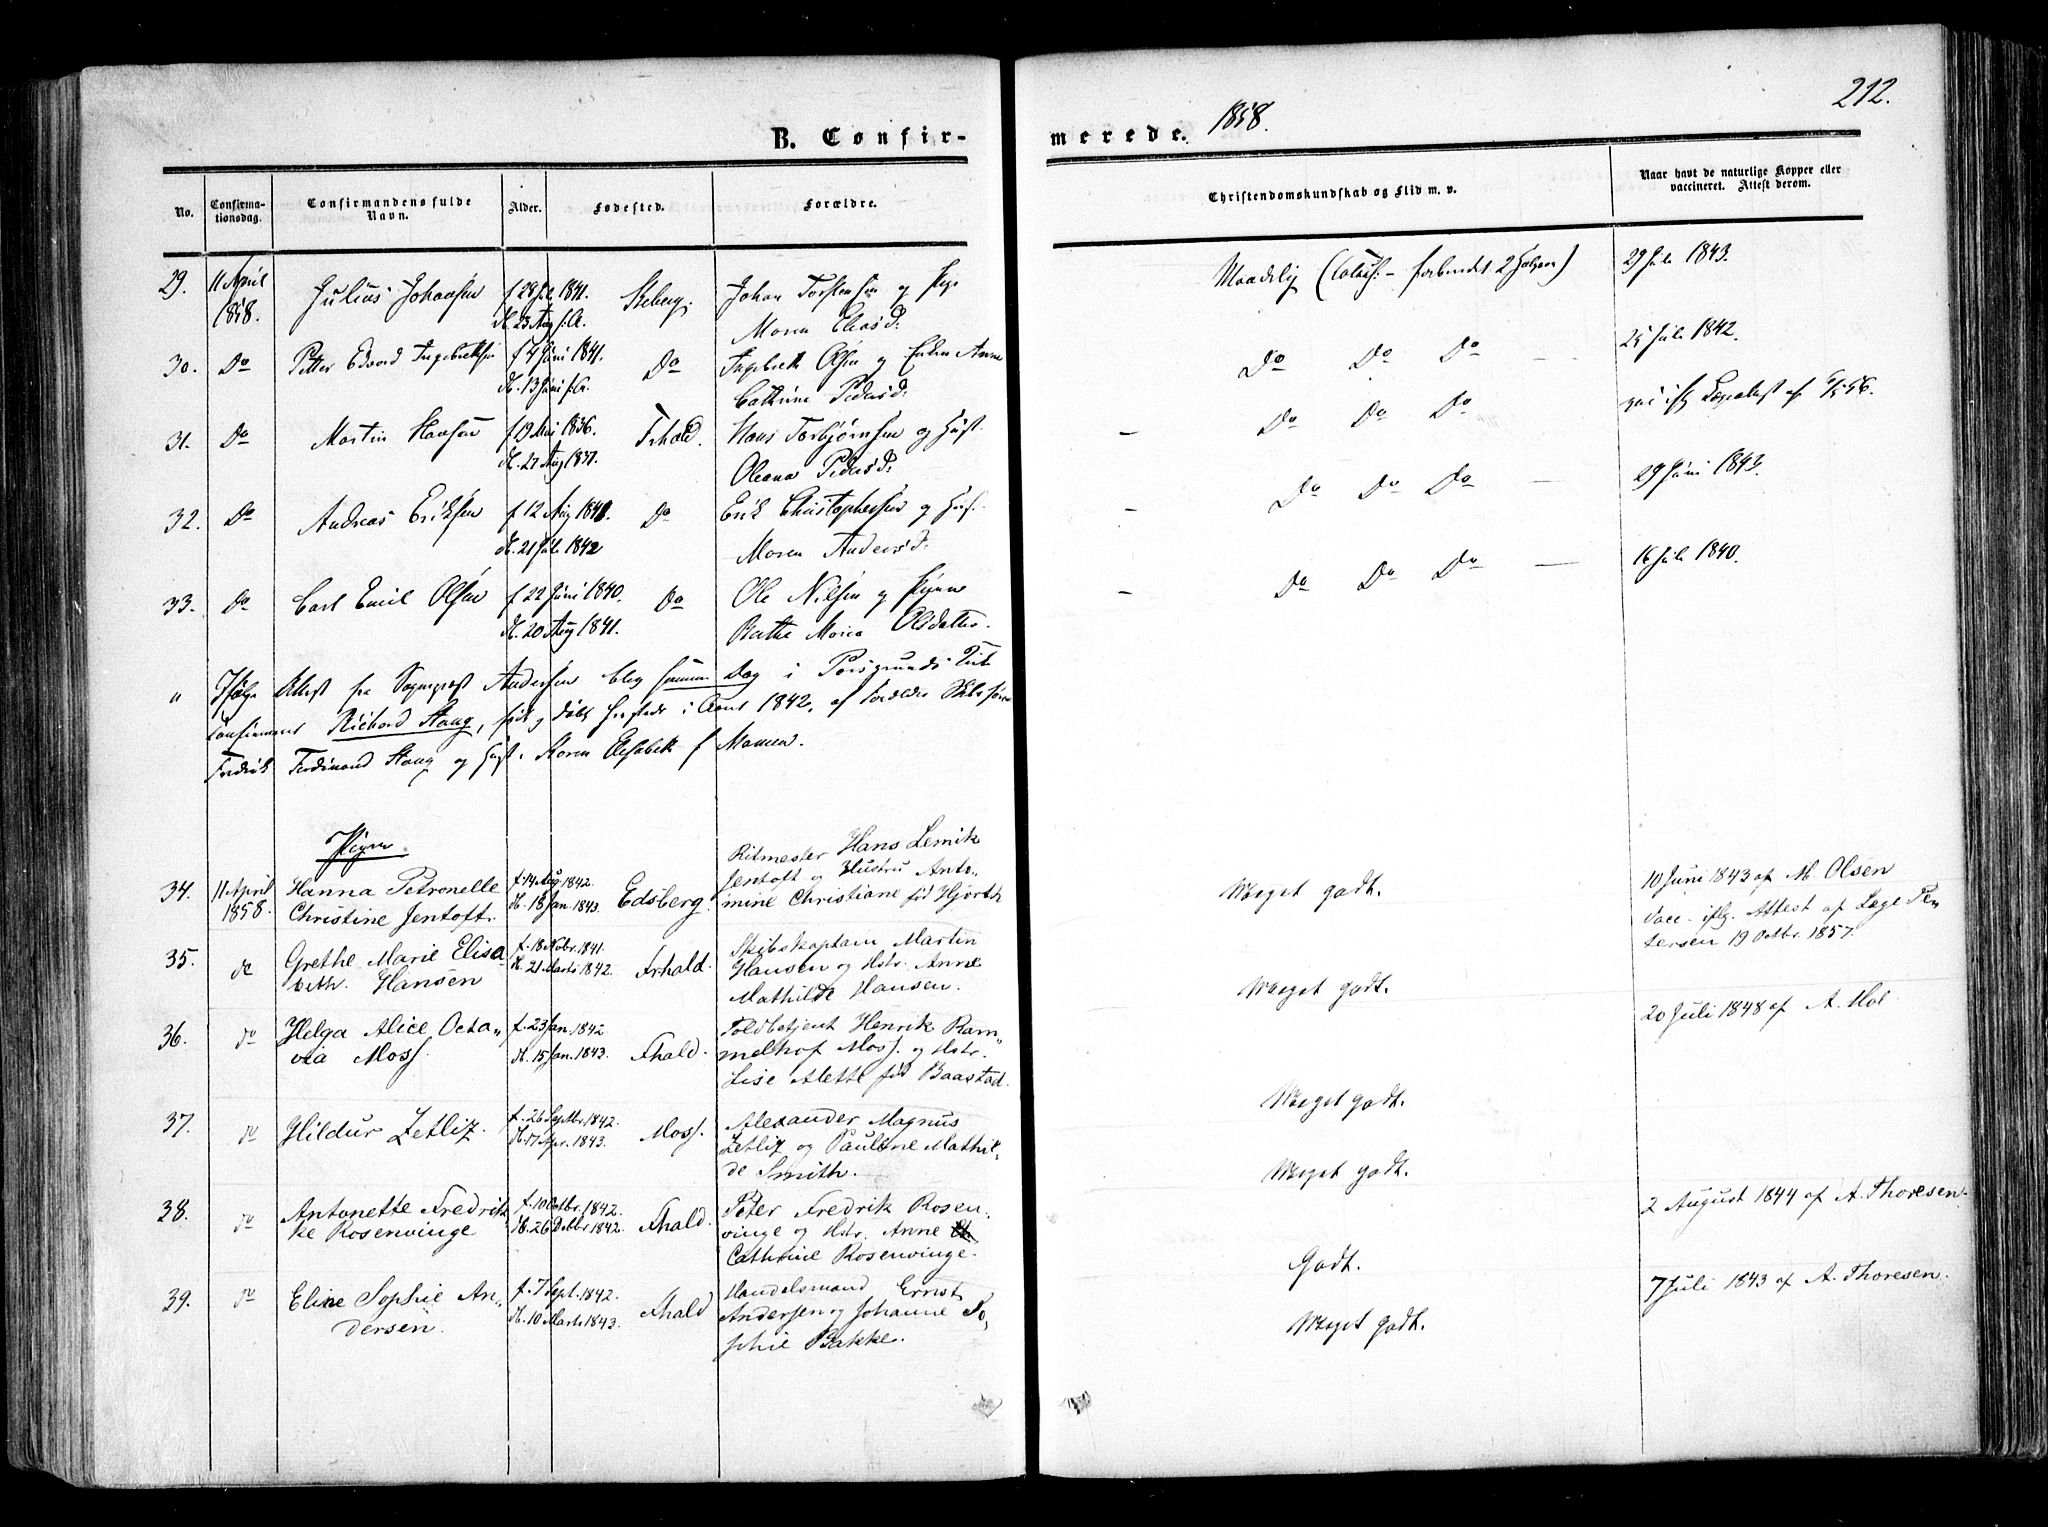 212.
B. Confir-
merede. 1858.
No.
Confirma-
tionsdag.
Confirmandens fulde
Navn.
Alder.
Fødested.
Forældre.
Christendomskundskab og Flid m. v.
Naar havt de naturlige Kopper eller
vaccineret. Attest derom.
29. 11 April
1858. Julius Johansen f 28 Juli 1841.
D. 23 Aug s.A. Skeberg. Johan Torstensen og Pige
Maren Eliasd. Maadelig 29 Juli 1843.
30. Do Petter Edvard Ingebretsen f 7 Juni 1841.
D. 13 Juni s.A. Do Ingebret Olsen og Enken Anne
Cathrine Pedersd. Do Do Do — 25 Juli 1842.
31. Do Martin Hansen f 19 Mai 1836.
D. 27 Aug 1837. Frhald. Hans Torbjørnsen og Hust.
Oleana Pedersd. — Do Do Do
32. Do Andreas Eriksen f 12 Aug 1841.
D. 21 Juli 1842 Do Erik Christophersen og Hus.
Maren Andersd. — Do Do Do — 29 Juni 1843.
33. Do Carl Emil Olsen f 22 Juni 1840.
D. 20 Aug 1841. Do Ole Nilsen og Pigen
Berthe Maria Olsdatter. — Do Do Do — 16 Juli 1840.
" Ifølge Attest fra Sogneprest Andersen blev samme Dag i Porsgrunds
confirmeret Richard Haug, født og døbt i Aaret 1842, af Forældre
Fredrik Ferdinand Haug og Hust. Karen Elisabeth f Mamen.
Piger
34. 11 April
1858. Hanna Petronelle
Christine Jentoft. f. 14 Aug 1842.
D. 18 Jan. 1843. Edsberg. Ritmester Hans Lemik
Jentoft og Hustru Anto-
mine Christiane fød Hjorth Meget godt. 10 Juni 1843 af M. Olsen
35. do Grethe Marie Elisa-
beth. Hansen f. 18 Nobr. 1841.
D. 21 Marts 1842. Frhald. Skibskaptain Martin
Hansen og Hstr. Anne
Mathilde Hansen. Meget godt. Vacc. iflg. Attest af Læge Pe-
tersen 19 Octbr. 1857.
36. do Helga Alice Octa-
via Moss. f. 23 Jan. 1842
D. 15 Jan. 1843. Fhald. Toldbetjent Henrik Ram-
melhof Moss. og Hstr.
Lise Alette fød Baastad. Meget godt. 20 Juli 1848 af A. Moe
37. do Hildur Zetliz. f. 26 Septbr. 1842.
D. 17 Apr. 1843. Moss. Alexander Magnus
Zetliz og Pauline Mathil-
de Smith. Meget godt.
38. do Antonette Fredrik-
ke Rosenvinge f. 10 Octbr. 1842.
D. 26 Decbr 1842. Fhald. Peter Fredrik Rosen-
vinge og Hstr. Anne
Cathrine Rosenvinge. Godt. 2 August 1844 af A. Thoresen.
39. do Eline Sophie An-
dersen. f. 7 Sept. 1842.
D. 10 Marts 1843. Fhald Handelsmand Ernst
Andersen og Johanne So-
phie Bakke. Meget godt. 7 Juli 1843 af A. Thoresen.